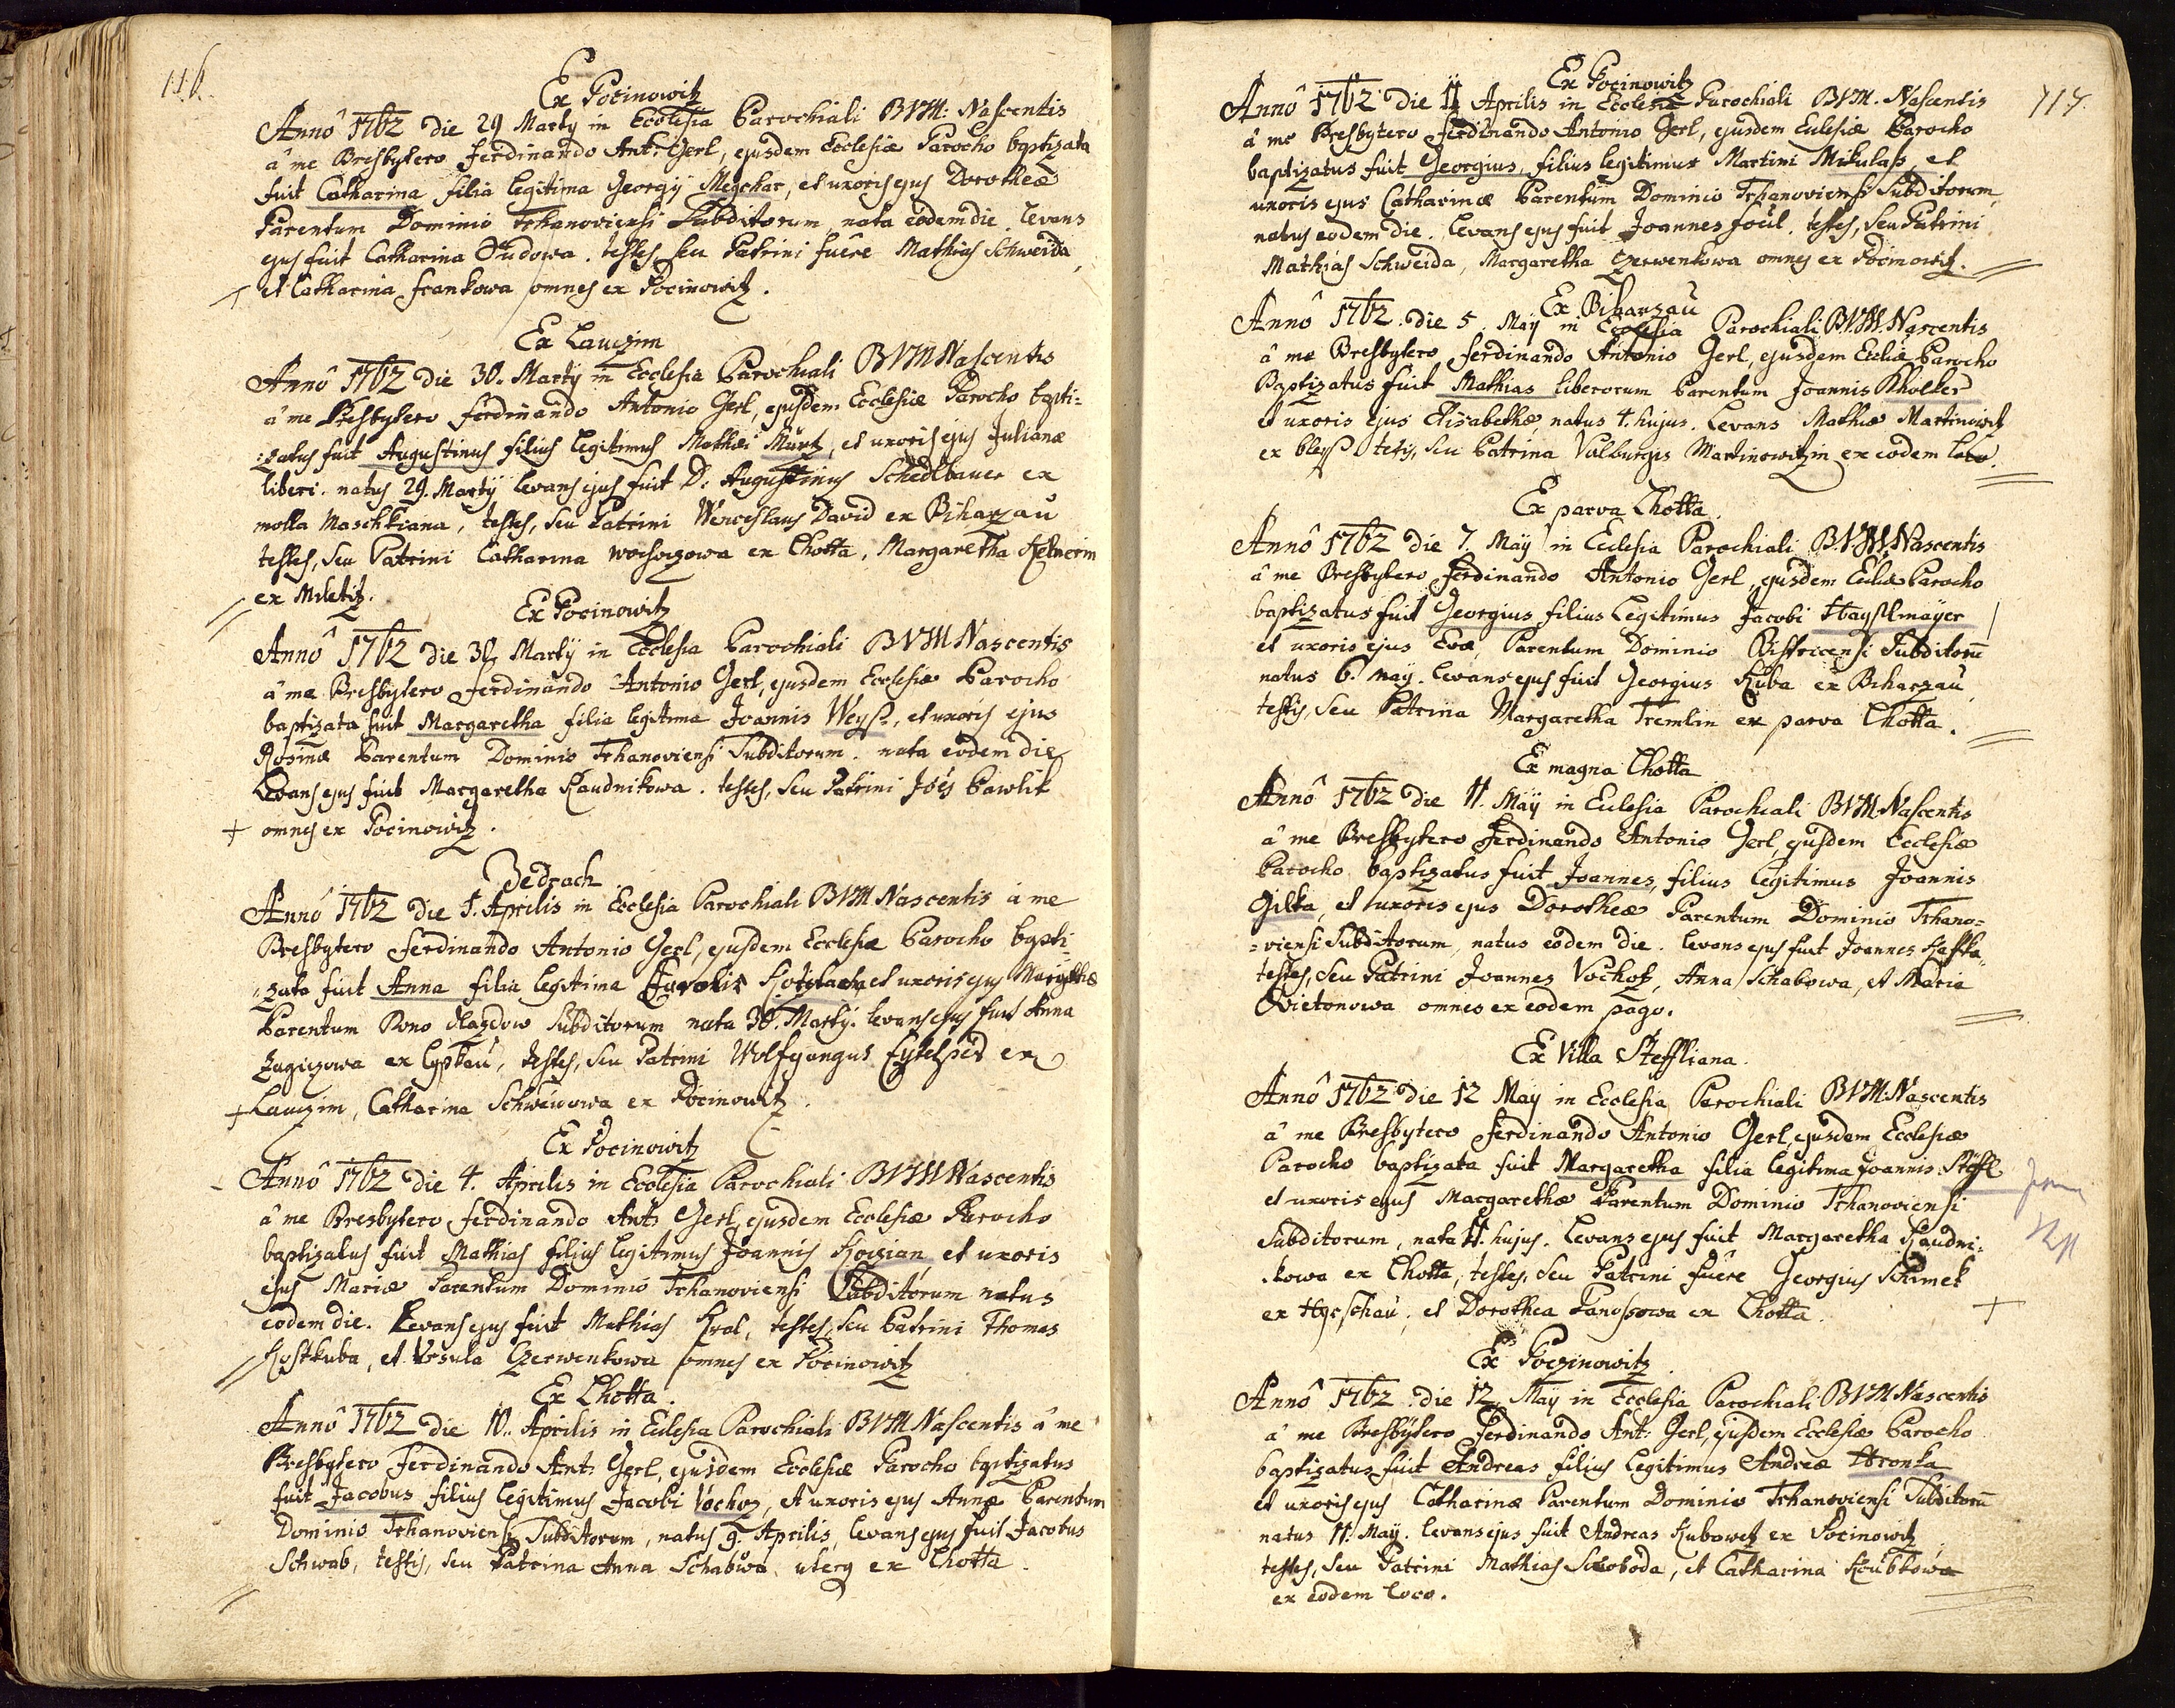 116.
Ex Pocinowitz
Annô 1762 die 29 Martÿ in Ecclesia Parochiali BVM: Nascentis
â me Presbytero Ferdinando Ant: Gerl, ejusdem Ecclesiæ Parocho baptizata
fuit Catharina filia legitima Georgÿ Megchar, et uxoris ejus Dorotheæ
Parentum Dominio Trhanoviensi Subditorum nata eodem die. levans
ejus fuit Catharina Dudowa. testes seu Patrini fuêre Mathias Schweida,
et Catharina Frankowa omnes ex Pocinowitz.
Ex Lauczim
Annô 1762 die 30. Martÿ in Ecclesia Parochiali BVM Nascentis
â me Presbytero Ferdinando Antonio Gerl, ejusdem Ecclesiæ Parocho bapti=
zatus fuit Augustinus filius legitimus Mathæi Küntz, et uxoris ejus Julianæ
liberi. natus 29. Martÿ levans ejus fuit D. Augustinus Schedlbauer ex
molla Maschkiana, testes, seu Patrini Wenceslaus David ex Biharzau
testes, seu Patrini Catharina ex Lhotta, Margaretha Kelnerin
ex Miletitz.
Ex Pocinowitz
Annô 1762 die 30 Martÿ in Ecclesia Parochiali BVM Nascentis
â me Presbytero Ferdinando Antonio Gerl, ejusdem Ecclesiæ Parocho
baptizata fuit Margaretha filia legitima Joannis Weyß, et uxoris ejus
Rosinæ Parentum Dominio Trhanoviensi Subditorum. nata eodem die
Levans ejus fuit Margaretha Kaudnikowa. testes, seu Patrini Joës Pawlik
omnes ex Pocinowitz.
Zedrach
Annô 1762 die 1. Aprilis in Ecclesia Parochiali BVM Nascentis â me
Presbytero Ferdinando Antonio Gerl, ejusdem Ecclesiæ Parocho bapti=
zata fuit Anna filia legitima et uxoris ejus
Parentum Subditorum nata 30. Martÿ. levans ejus fuit Anna
ex testes, seu Patrini Wolfgangus ex
Lauczim, Catharina ex Pocinowitz.
Ex Pocinowitz
Annô 1762 die 4. Aprilis in Ecclesia Parochiali BVM Nascentis
â me Presbytero Ferdinando Ant: Gerl, ejusdem Ecclesiæ Parocho
baptizatus fuit Mathias filius legitimus Joannis Kozian, et uxoris
ejus Mariæ Parentum Dominio Trhanoviensi Subditorum natus
eodem die. Levans ejus fuit Mathias Kral, testes, seu Patrini Thomas
Kostkuba, et Ursula Czerwenkowa omnes ex Pocinowitz
Ex Lhotta.
Annô 1762 die 10. Aprilis in Eclesia Parochiali BVM Nascentis â me
Presbytero Ferdinando Ant: Gerl, ejusdem Ecclesiæ Parocho baptizatus
fuit Jacobus filius legitimus Jacobi Vochoz, et uxoris ejus Annæ Parentum
Dominio Trhanoviensi Subditorum, natus 9. Aprilis, levans ejus fuit Jacobus
Schwab, testis, seu Patrina Anna Schabowa uterq ex Lhotta.
117.
Ex Pocinowitz
Annô 1762 die 11 Aprilis in Ecclesia Parochiali BVM. Nascentis
â me Presbytero Ferdinando Antonio Gerl, ejusdem Eclesiæ Parocho
baptizatus fuit Georgius, filius legitimus Martini Mikulaß et
uxoris ejus Catharinæ Parentum Dominio Trhanoviensi Subditorum,
natus eodem die. Levans ejus fuit Joannes Jocul. testes, seu Patrini
Mathias Schweida, Margaretha Czerwenkowa omnes ex Pocinowitz.
Ex Biharzau
Annô 1762. die 5. Maÿ in Ecclesia Parochiali B.V.M. Nascentis
â me Presbytero Ferdinando Antonio Gerl, ejusdem Eccliæ Parocho
Baptizatus fuit Mathias liberorum Parentum Joannis Kholler
et uxoris ejus Elisabethæ, natus 4. hujus. Levans Mathiæ Martinowitz
ex testis, seu Patrina Valburgis Martinowitzin ex eodem loco.
Ex parva Lhotta.
Annô 1762 die 7. Maÿ in Eclesia Parochiali B.V.M. Nascentis
â me Presbytero Ferdinando Antonio Gerl, ejusdem Ecliæ Parocho
baptizatus fuit Georgius filius legitimus Jacobi Hayßlmayer
et uxoris ejus Evæ, Parentum Dominio Bistricensi Subditorū
natus 6. Maÿ. levans ejus fuit Georgius Kuba ex Biharzau,
testis, seu Patrina Margaretha Tremlin ex parva Lhotta.
Ex magna Lhotta
Annô 1762 die 11. Maÿ in Eclesia Parochiali BVM Nascentis
â me Presbytero Ferdinando Antonio Gerl, ejusdem Ecclesiæ
Parocho baptizatus fuit Joannes, filius legitimus Joannis
Gilka, et uxoris ejus Dorotheæ Parentum Dominio Trhano=
=viensi Subditorum, natus eodem die. levans ejus fuit Joannes Kafka,
testes, seu Patrini Joannes Vochoz, Anna Schabowa, et Maria
Qvietonowa omnes ex eodem pago.
Ex Villa Steffliana.
Annô 1762 die 12 Maÿ in Ecclesia Parochiali BVM. Nascentis
â me Presbytero Ferdinando Antonio Gerl, ejusdem Ecclesiæ
Parocho baptizata fuit Margaretha filia legitima Joannis Stöffl
et uxoris ejus Margarethæ Parentum Dominio Trhanoviensi
Subditorum, nata 11. hujus. Levans ejus fuit Margaretha Kaudni=
kowa ex Lhotta, testes, seu Patrini fuêre Georgius Schimek
ex et Dorothea Hanoßowa ex Lhotta.
Ex Poczinowitz
Annô 1762. die 12 Maÿ in Ecclesia Parochiali BVM Nascentis
â me Presbytero Ferdinando Ant: Gerl, ejusdem Ecclesiæ Parocho
baptizatus fuit Andreas filius legitimus Andreæ Hronka
et uxoris ejus Catharinæ Parentum Dominio Trhanoviensi Subditorū
natus 11. Maÿ. levans ejus fuit Andreas Kubowetz ex Pocinowitz
testes, seu Patrini Mathias Swoboda, et Catharina Koubkowa
ex eodem loco.